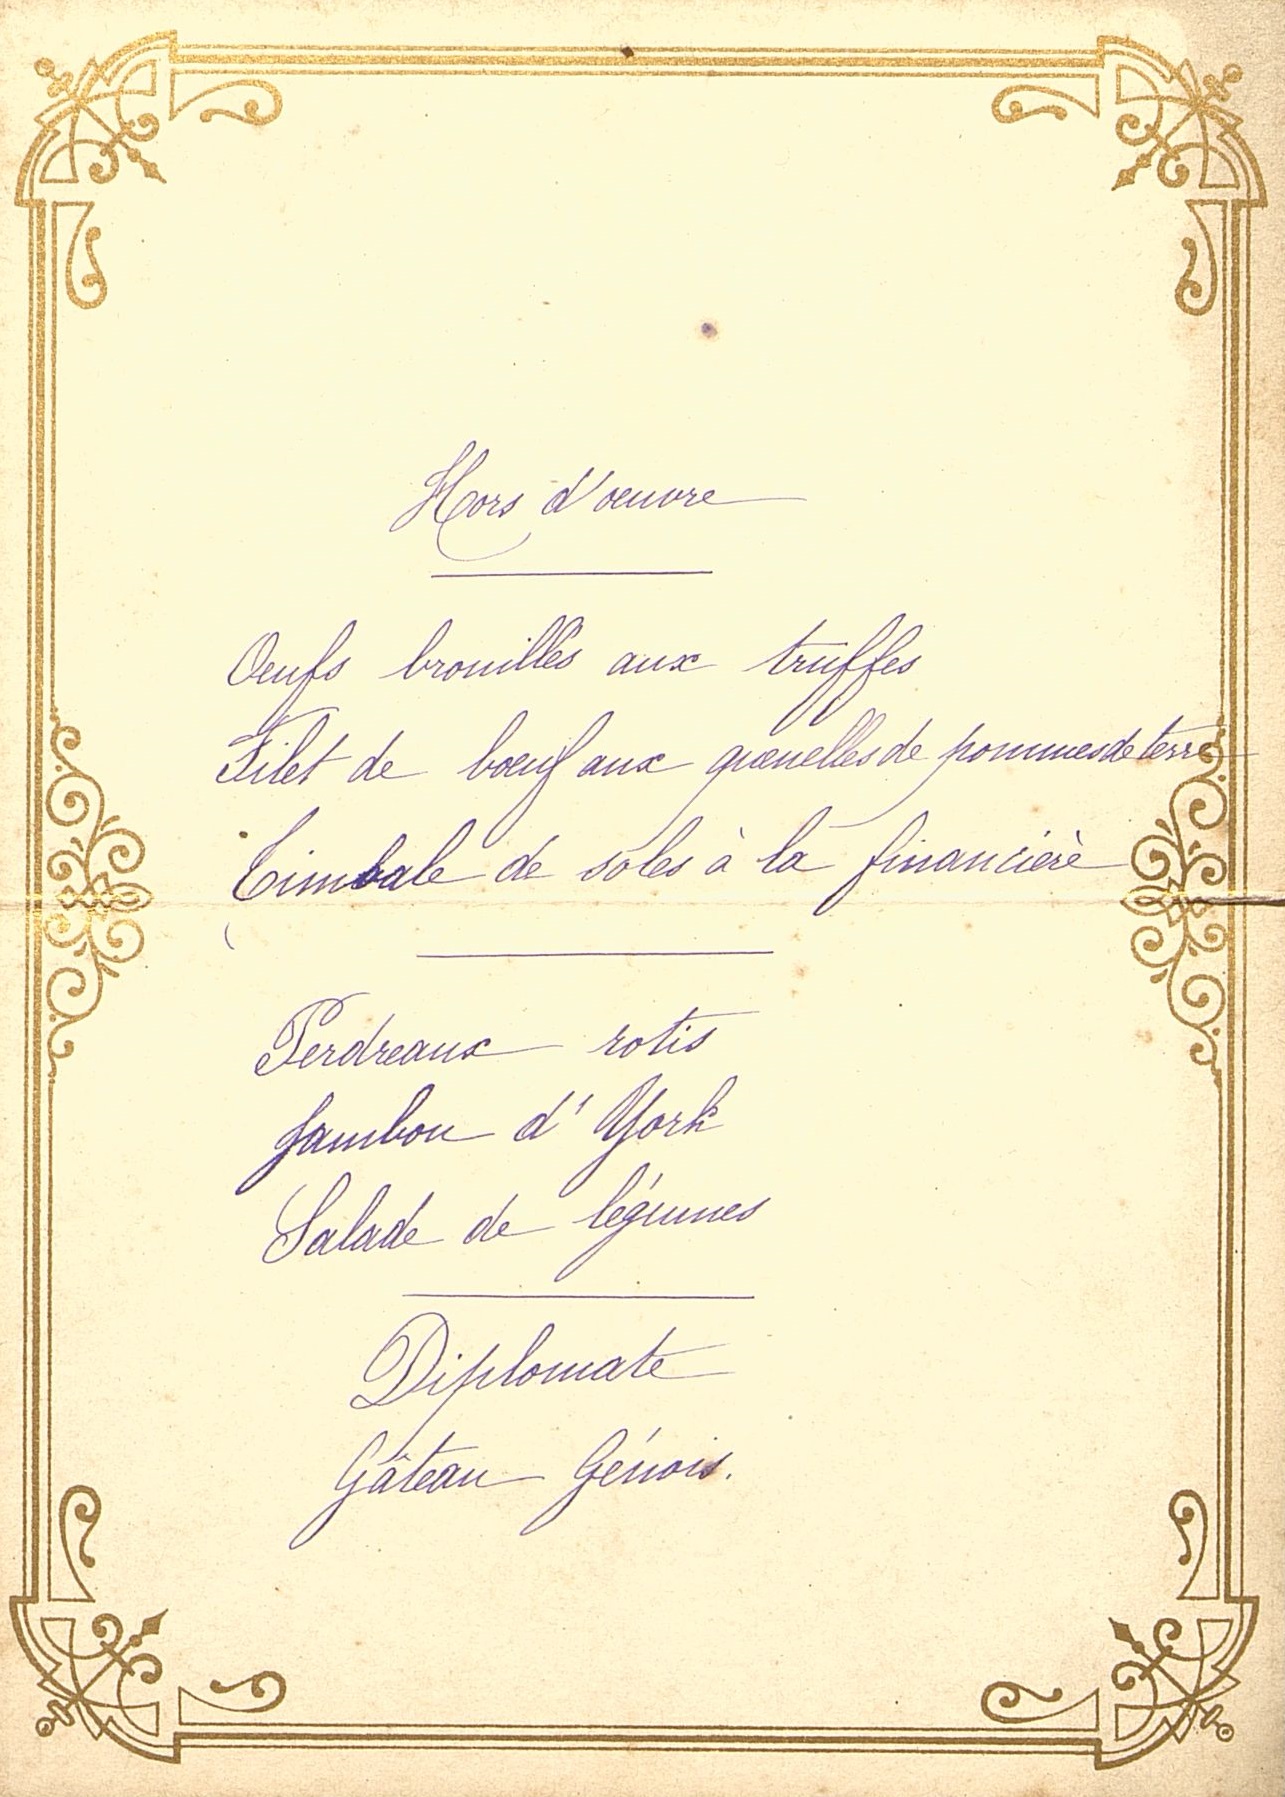 Hors d'oeuvre
Oeufs brouillés aux truffes
Filet de boeuf aux quenelles de pommes de terre
Timbale de soles à la financière
Perdreaux rotis
Jambon d'York
Salade de légumes
Diplomate
Gâteau Génois.